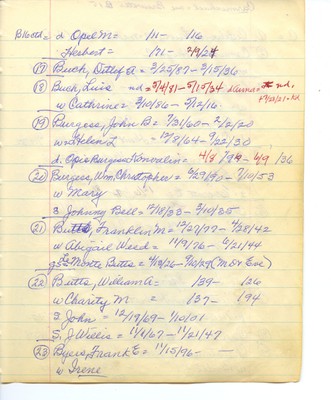 Blooth = d Opel M = 111 - 116
Herbert = 171 - 2/9/24
(17) Buch, Detlof A = 3/25/87 - 3/15/36
(18) Buch, Luis nd = 5/4/81 - 5/15/34
w Cathrine = 3/10/86 - 5/12/16
(19) Burgess, John B = 7/31/60 - 2/2/20
w = Helen L = 12/8/64 - 9/22/30
d. Opie Burgess = 4/8 - 6/9 /36
(20) Burgess, Wm. Christopher = 6/29/90 - 7/10/53
w Mary
s Johnny Bell = 12/18/83 - 3/10/85
21) Butts, Franklin M = 12/27/77 - 4/28/42
w Abigail Weed = 11/9/76 - 6/21/44
gs L. Monte Butts = 4/19/26 - 9/20/29 (M or Eve)
(22) Butts, William A = 139 - 126
w Charity M = 137 - 194
s John = 12/19/69 - 1/10/01
S, J Willis = 11/4/67 - 11/21/47
(23) Byers, Frank E = 11/15/96 - —
w Irene